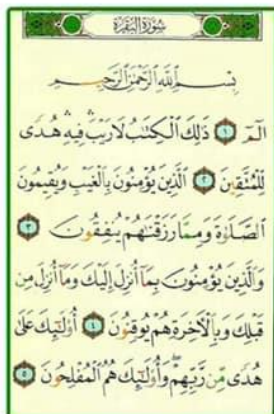 سُورَةُ البَقَرَةِ
بِسْمِ اللَّهِ الرَّحْمَٰنِ الرَّحِيمِ
الٓمٓ ١ ذَٰلِكَ الْكِتَٰبُ لَا رَيْبَ ۛ فِيهِ ۛ هُدًى
لِّلْمُتَّقِينَ ٢ الَّذِينَ يُؤْمِنُونَ بِالْغَيْبِ وَيُقِيمُونَ
الصَّلَوٰةَ وَمِمَّا رَزَقْنَٰهُمْ يُنفِقُونَ ٣
وَالَّذِينَ يُؤْمِنُونَ بِمَآ أُنزِلَ إِلَيْكَ وَمَآ أُنزِلَ مِن
قَبْلِكَ وَبِالْءَاخِرَةِ هُمْ يُوقِنُونَ ٤ أُو۟لَٰٓئِكَ عَلَىٰ
هُدًى مِّن رَّبِّهِمْ ۖ وَأُو۟لَٰٓئِكَ هُمُ الْمُفْلِحُونَ ٥